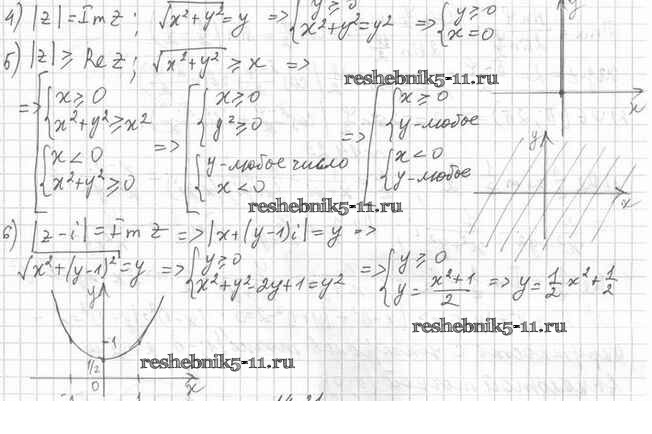 4) |z| = Im z; √(x²+y²) = y => { y ≥ 0 x²+y²=y² => { y ≥ 0 x=0
y
5) |z| ≥ Re z; √(x²+y²) ≥ x =>
reshebnik5-11.ru
x
=> [ { x ≥ 0 x²+y² ≥ x² { x < 0 x²+y² ≥ 0 => [ { x ≥ 0 y² ≥ 0 { y-любое число x < 0 => [ { x ≥ 0 y-любое { x < 0 y-любое
y
x
reshebnik5-11.ru
6) |z-i| = Im z => |x+(y-1)i| = y =>
√(x²+(y-1)²) = y => { y ≥ 0 x²+y²-2y+1=y² => { y ≥ 0 y = (x²+1)/2 => y = 1/2 x² + 1/2
y
reshebnik5-11.ru
1
1/2
reshebnik5-11.ru
0
x